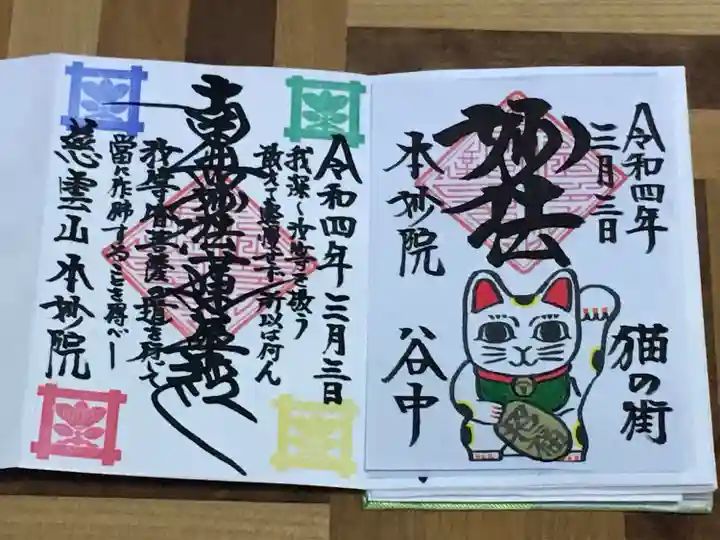 令和四年三月三日
我深く汝等を敬う
敢えて軽慢せず所以は何ん
南無妙法蓮華経
汝等皆菩薩の道を行じて
当に作仏することを得べし
慈雲山本妙院
令和四年
三月三日
妙法
本妙院
猫の街
谷中